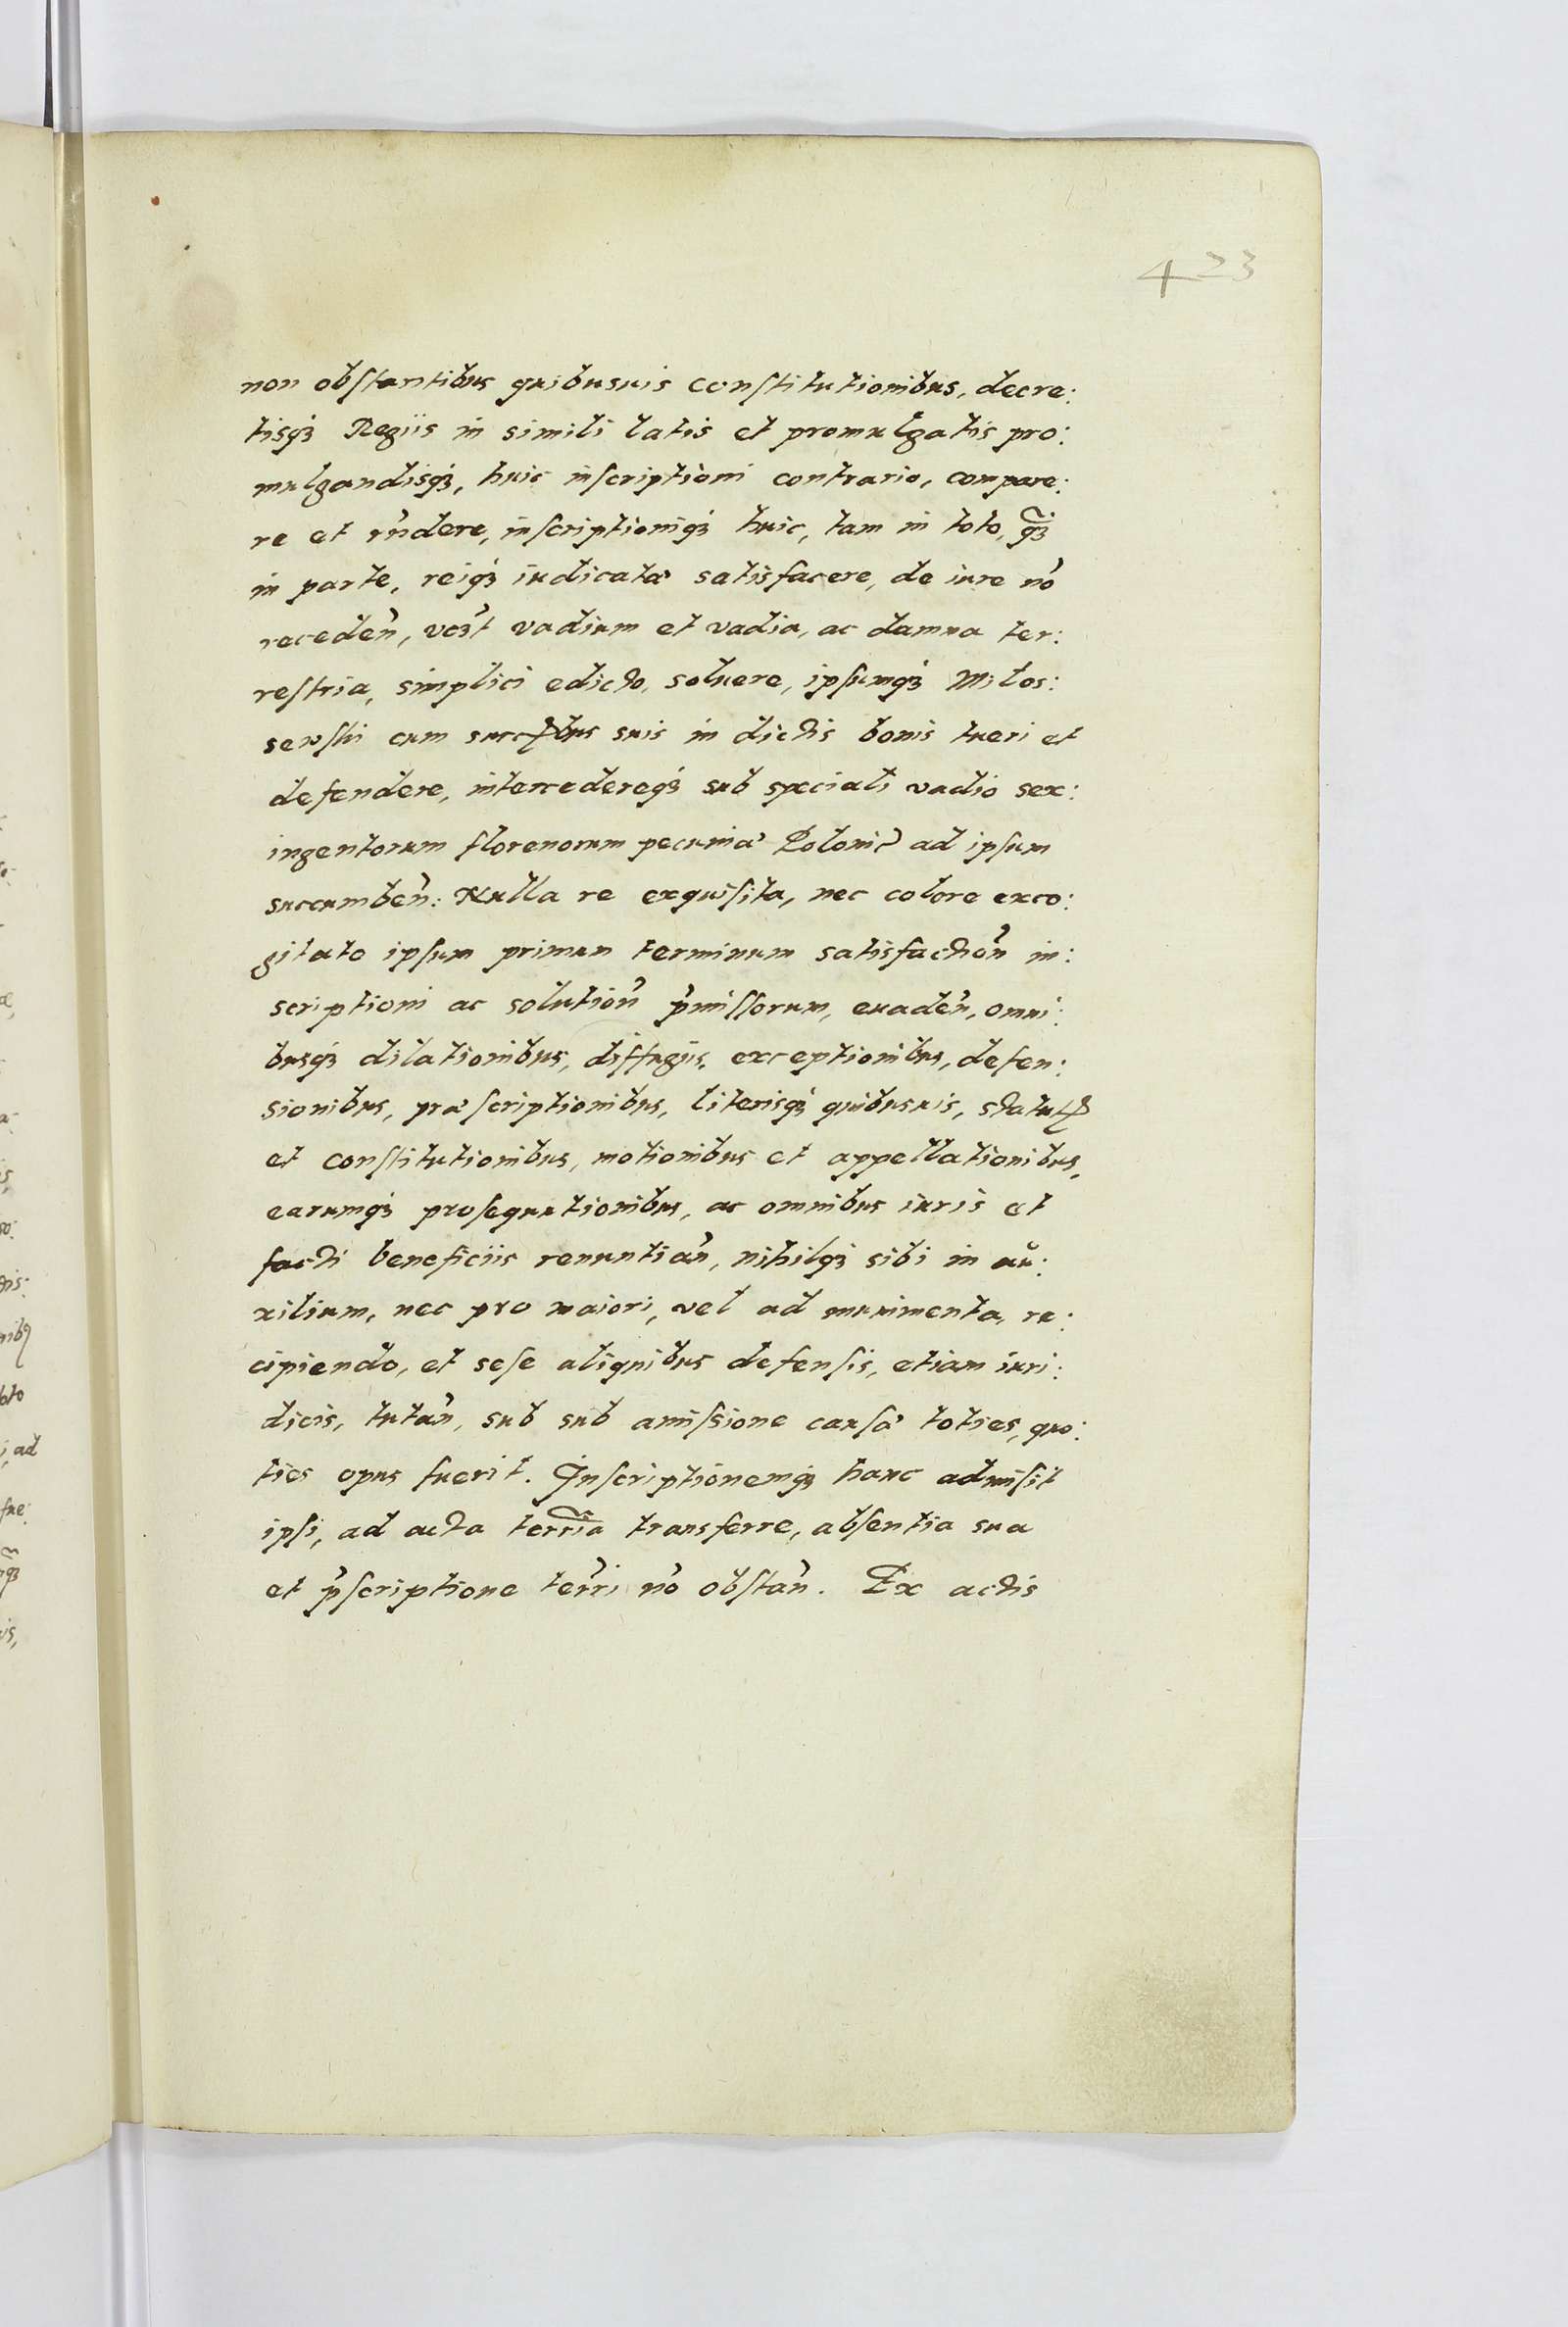 423
non obſtantibus quibusuis conſtitutionibus, decre:
tisqꝫ Regiis in simili latis et promulgatis pro:
mulgandisqꝫ, huic inſcriptioni contrario, compare:
re et rñdere, inſcriptioniqꝫ huic, tam in toto, q̃ꝫ
in parte, reiqꝫ iudicatæ satisfacere, de iure nõ
receden̄, vadium et vadia, ac damna ter:
reſtria, simplici edicto, soluere, ipſumqꝫ Milos:
sewſki cum succꝭbus suis in dictis bonis tueri et
defendere, intercedereqꝫ sub speciali vadio sex:
ingentorum florenorum pecuniæ Polonic̄ ad ipſum
succumben̄: Nulla re exquiſita, nec colore exco:
gitato ipſum primum terminum satisfaction̄ in:
scriptioni ac solution̄ p̄miſſorum, euaden̄, omni:
busqꝫ dilationibus, diffugiis, exceptionibus, defen:
sionibus, præſcriptionibus, literisqꝫ quibusuis, statutꝭ
et conſtitutionibus, motionibus et appellationibus,
earumqꝫ proſequutionibus, ac omnibus iuris et
facti beneficiis renuntian̄, nihilqꝫ sibi in au:
xilium, nec pro maiori, vel ad munimenta, re:
cipiendo, et seſe aliquibus defenſis, etiam iuri:
dicis, tutan̄, sub sub amiſsione cauſæ toties, quo:
ties opus fuerit. Inſcriptionemqꝫ hanc admiſit
ipſi, ad acta terr̃ia transferre, abſentia sua
et p̄ſcriptione ter̄ri nõ obſtan̄. Ex actis